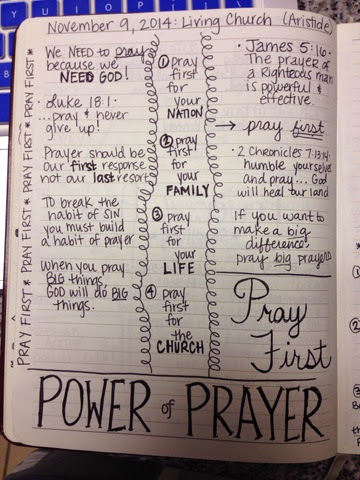 November 9, 2014: Living Church (Aristide)
PRAY FIRST * PRAY FIRST * PRAY FIRST * PRAY FIRST * PRAY FIRST *
We NEED to pray
because we
NEED GOD!
· Luke 18:1 ·
...pray & never
give up!
Prayer should be
our first response
not our last resort
To break the
habit of SIN
you must build
a habit of prayer
When you pray
BIG things,
GOD will do BIG
things.
① pray
first
for
your
NATION
② pray
first
for
your
FAMILY
③ pray
first
for
your
LIFE
④ pray
first
for
the
CHURCH
· James 5:16 ·
The prayer of
a Righteous man
is powerful &
effective.
→ pray first
· 2 Chronicles 7:13-14 ·
humble yourselves
and pray... God
will heal our land
If you want to
make a big
difference,
pray big prayers
Pray
First
POWER of PRAYER